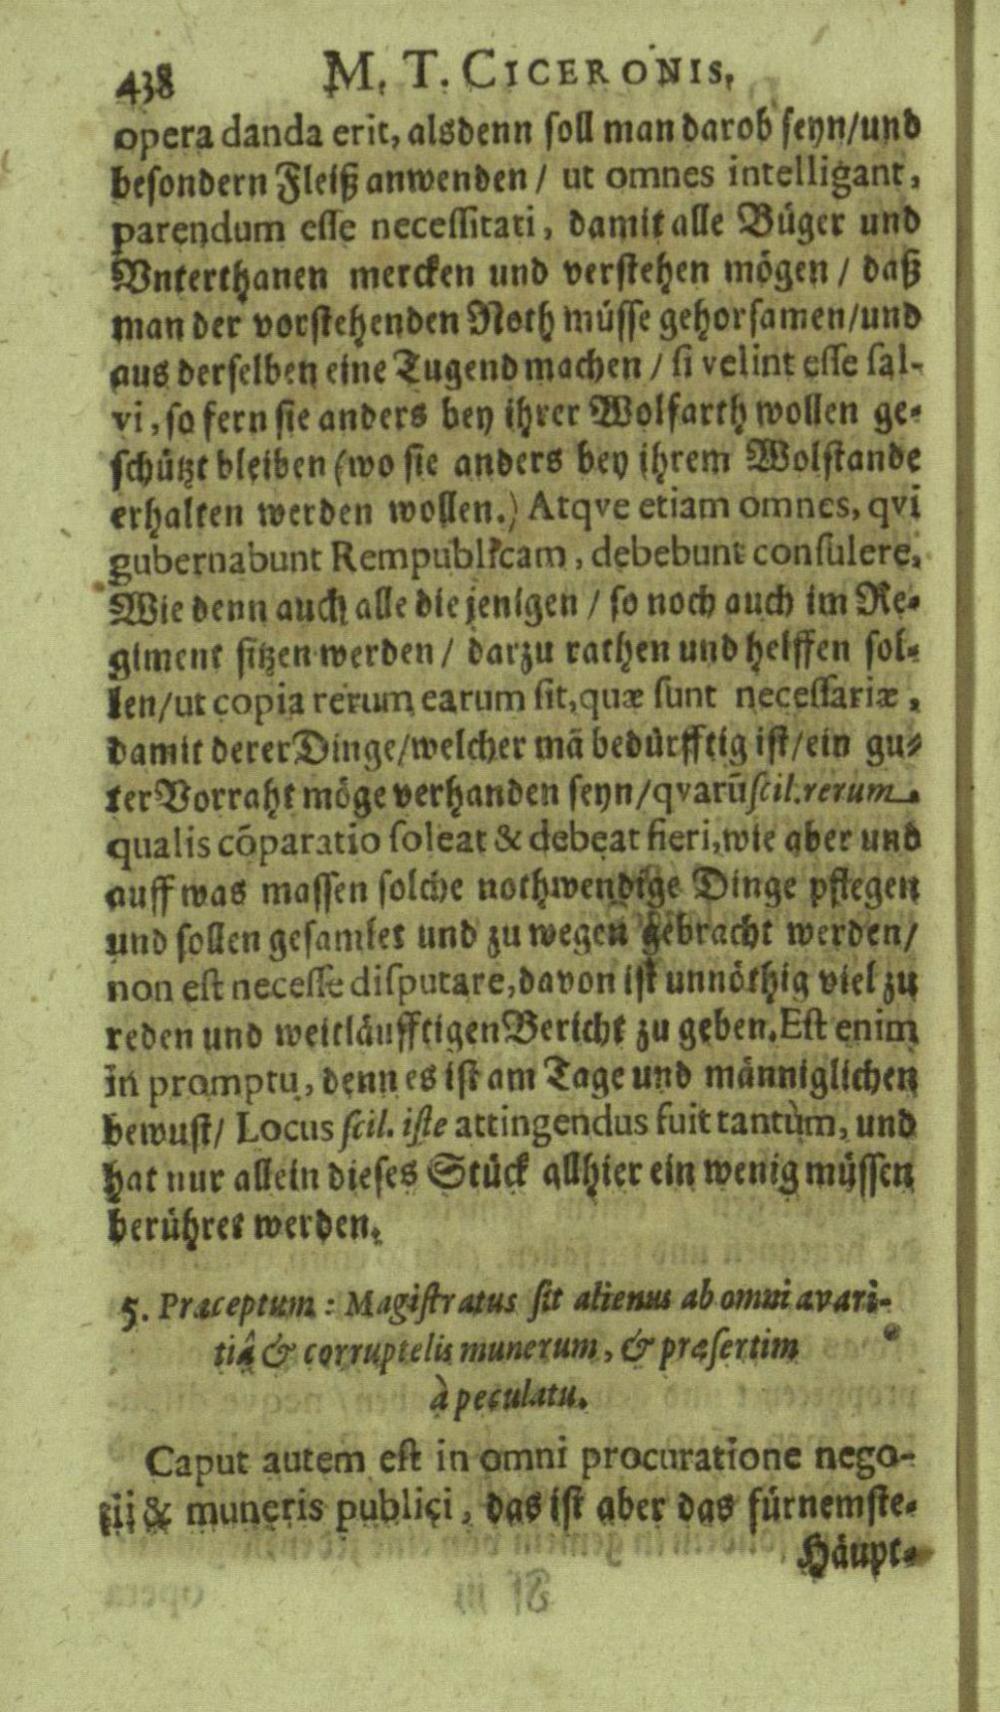 438 M. T. CICERONIS.
opera danda erit, alsdenn soll man darob seyn/und
besondern Fleiß anwenden / ut omnes intelligant,
parendum esse necessitati, damit alle Büger und
Vnterthanen mercken und verstehen mögen / daß
man der vorstehenden Noth müsse gehorsamen/und
aus derselben eine Tugend machen / si velint esse sal-
vi, so fern sie anders bey ihrer Wolfarth wollen ge-
schützt bleiben (wo sie anders bey ihrem Wolstande
erhalten werden wollen.) Atqve etiam omnes, qvi
gubernabunt Rempublicam, debebunt consulere,
Wie denn auch alle die jenigen / so noch auch im Re-
giment sitzen werden / darzu rathen und helffen sol-
len/ut copia rerum earum sit, quæ sunt necessariæ,
damit derer Dinge/welcher mã bedürfftig ist/ein gu-
ter Vorraht möge verhanden seyn/qvarũ scil. rerum
qualis cõparatio soleat & debeat fieri, wie aber und
auff was massen solche nothwendige Dinge pflegen
und sollen gesamlet und zu wegen gebracht werden/
non est necesse disputare, davon ist unnöthig viel zu
reden und weitläufftigen Bericht zu geben. Est enim
in promptu, denn es ist am Tage und männiglichen
bewust/ Locus scil. iste attingendus fuit tantùm, und
hat nur allein dieses Stück allhier ein wenig müssen
berühret werden.
5. Præceptum : Magistratus sit alienus ab omni avari-
tiâ & corruptelis munerum, & præsertim
à peculatu.
Caput autem est in omni procuratione nego-
tii & muneris publici, das ist aber das fürnemste-
Häupt-